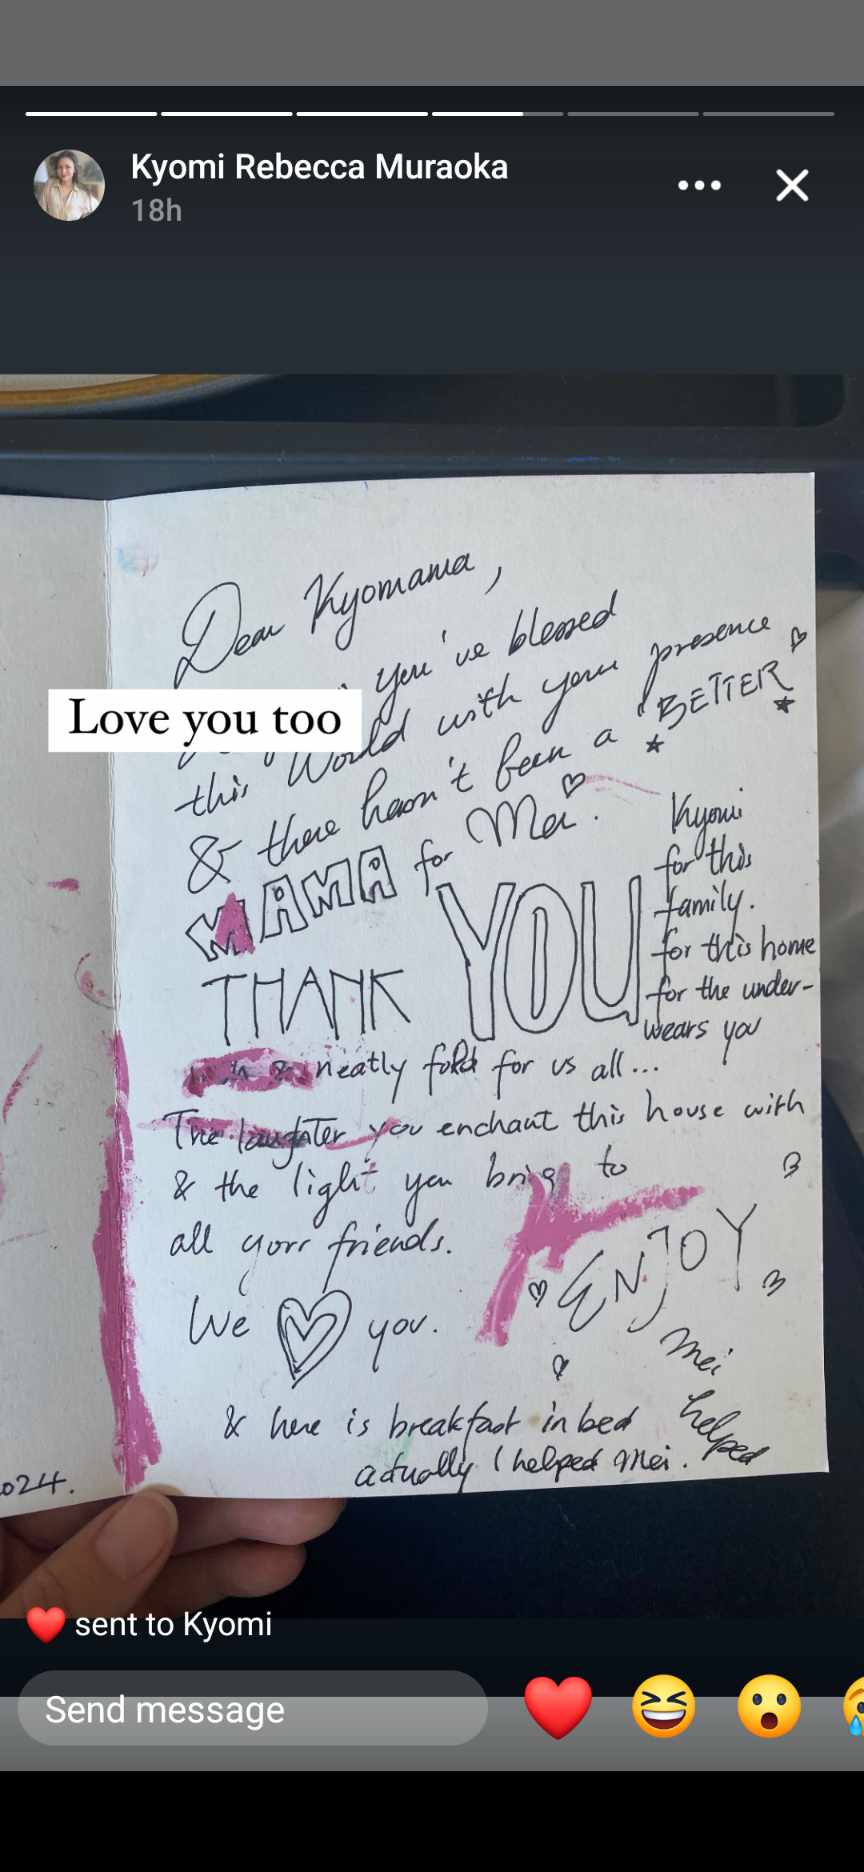 Kyomi Rebecca Muraoka
18h
Dear Kyomama,
you've blessed
Love you too
this World with your presence
& there hasn't been a "BETTER"
MAMA for Mei.
THANK YOU
Kyomi
for this
family.
for this home
for the under-
wears you
neatly fold for us all...
The laughter you enchant this house with
& the light you bring to
all your friends.
We you.
ENJOY
& here is breakfast in bed
Mei
helped
actually I helped Mei.
2024.
sent to Kyomi
Send message